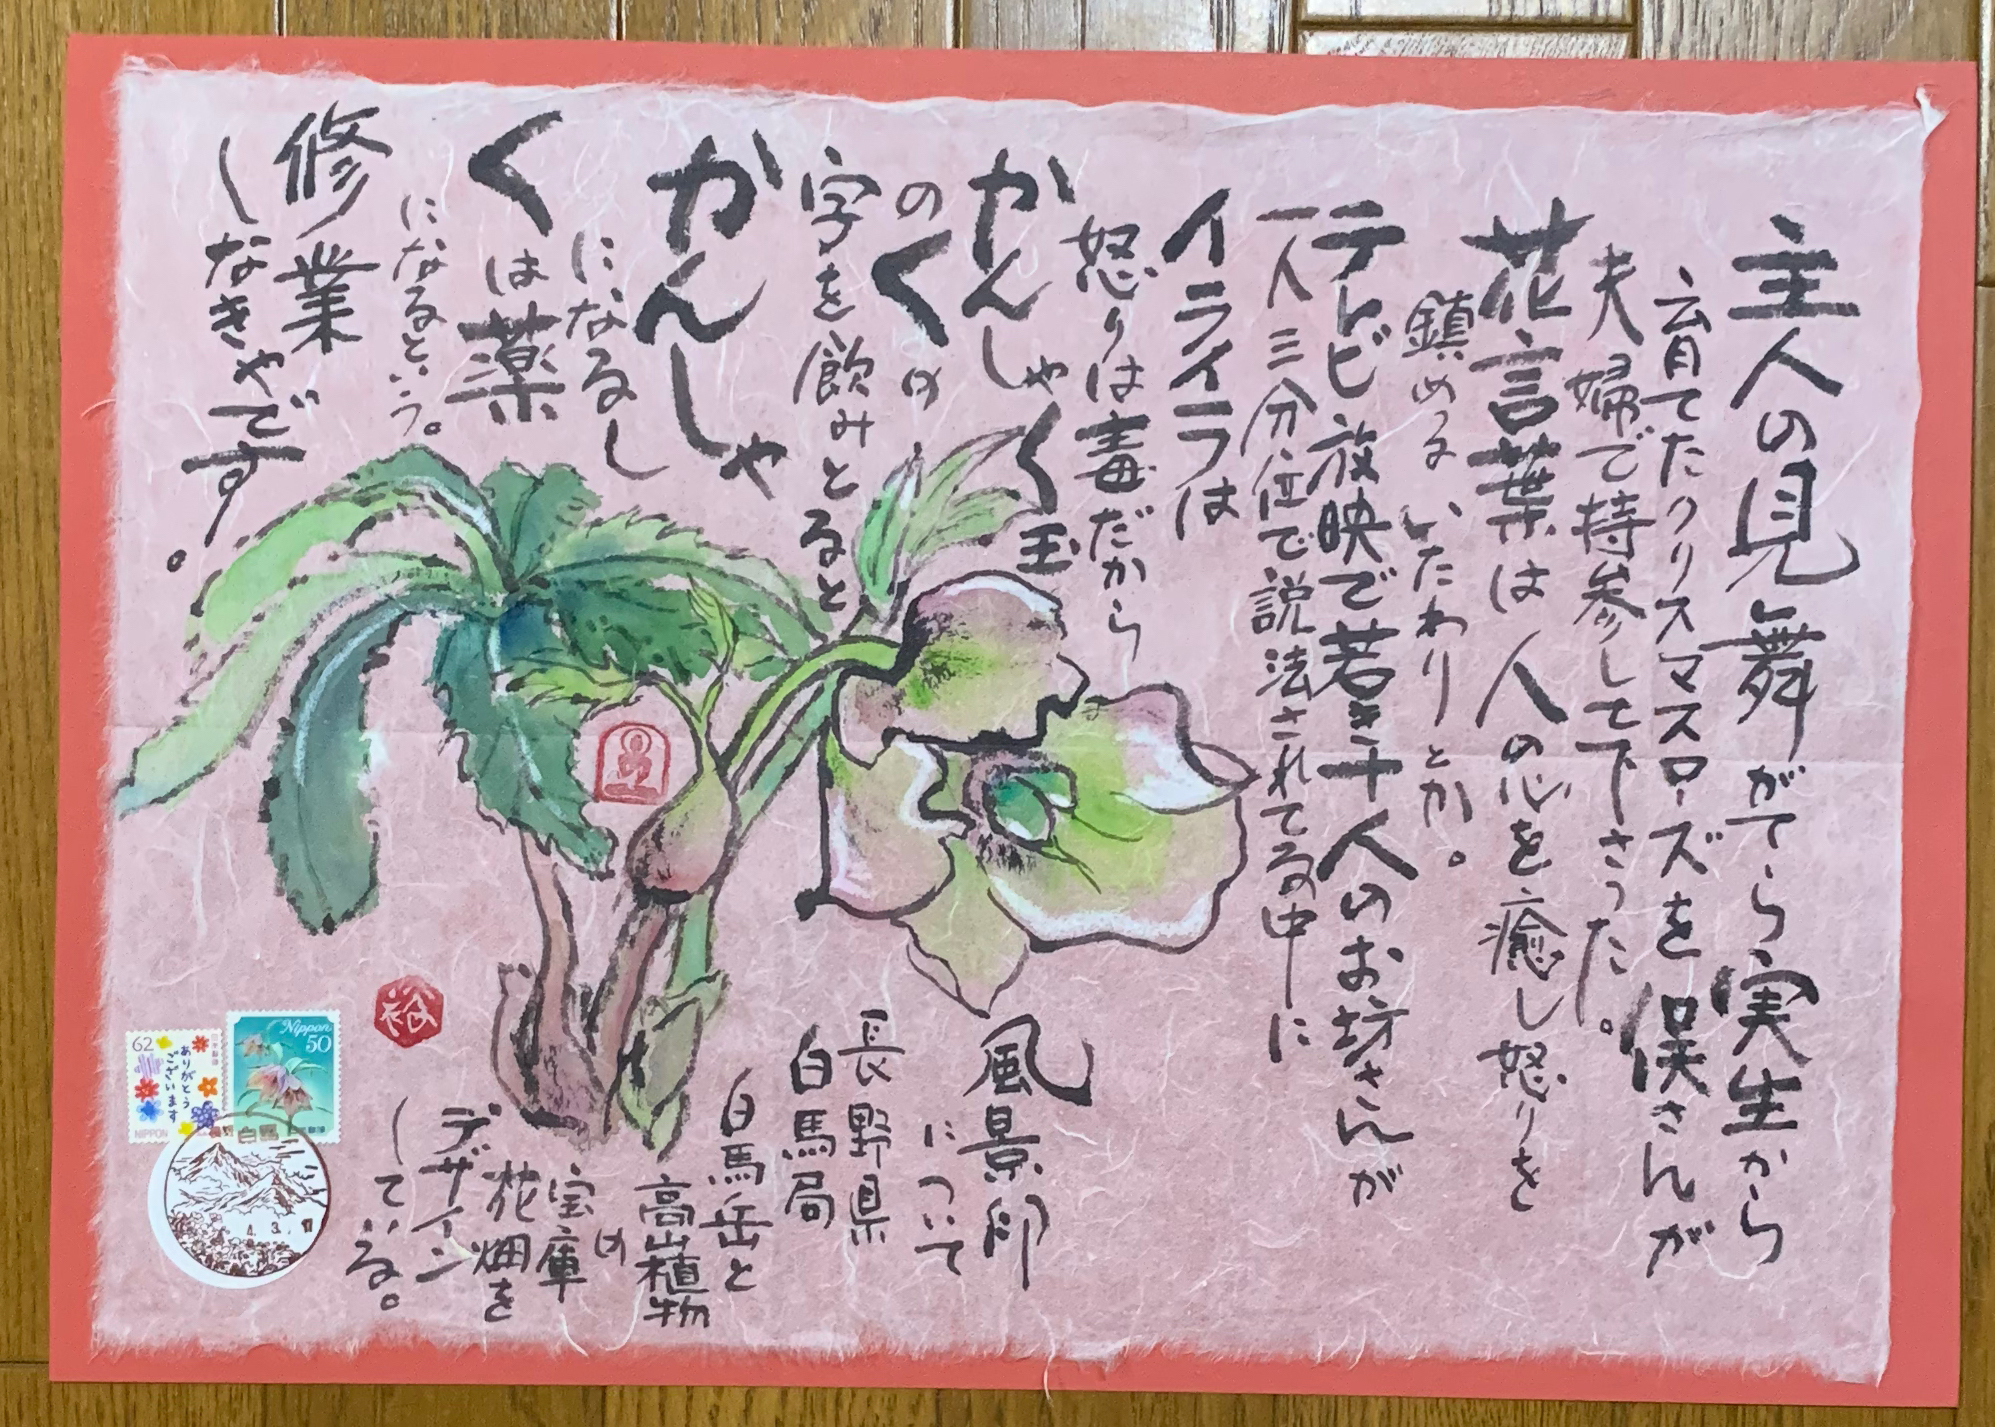 主人の見舞がてら、実生から
育てたクリスマスローズを保さんが
夫婦で持参して下さった。
花言葉は人の心を癒し怒りを
鎮める いたわりとか。
テレビ放映で若き千人のお坊さんが
一人三分位で説法されてる中に
イライラは
怒りは毒だから
かんしゃく玉
のくの
字を飲みとると
かんしゃ
になるし
くは薬
になるという。
修業
しなきゃです。
風景印
について
長野県
白馬局
白馬岳と
高山植物
の
宝庫
花畑を
デザイン
している。
裕
62
ありがとう
ございます
NIPPON
Nippon
50
白馬
4.3.